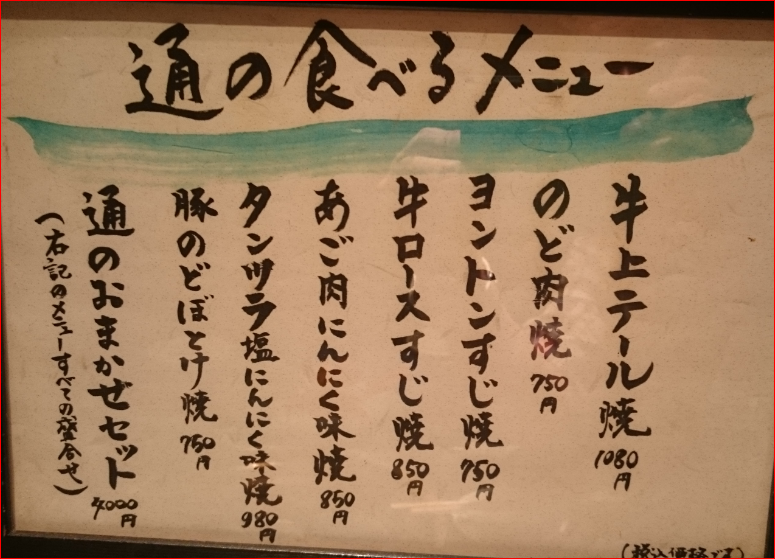 通の食べるメニュー
牛上テール焼 1080円
のど肉焼 750円
ヨントンすじ焼 750円
牛ロースすじ焼 850円
あご肉にんにく味焼 850円
タンツラ塩にんにく味焼 980円
豚のどぼとけ焼 750円
通のおまかせセット 4000円
(右記のメニューすべての盛合せ)
(税込価格です)